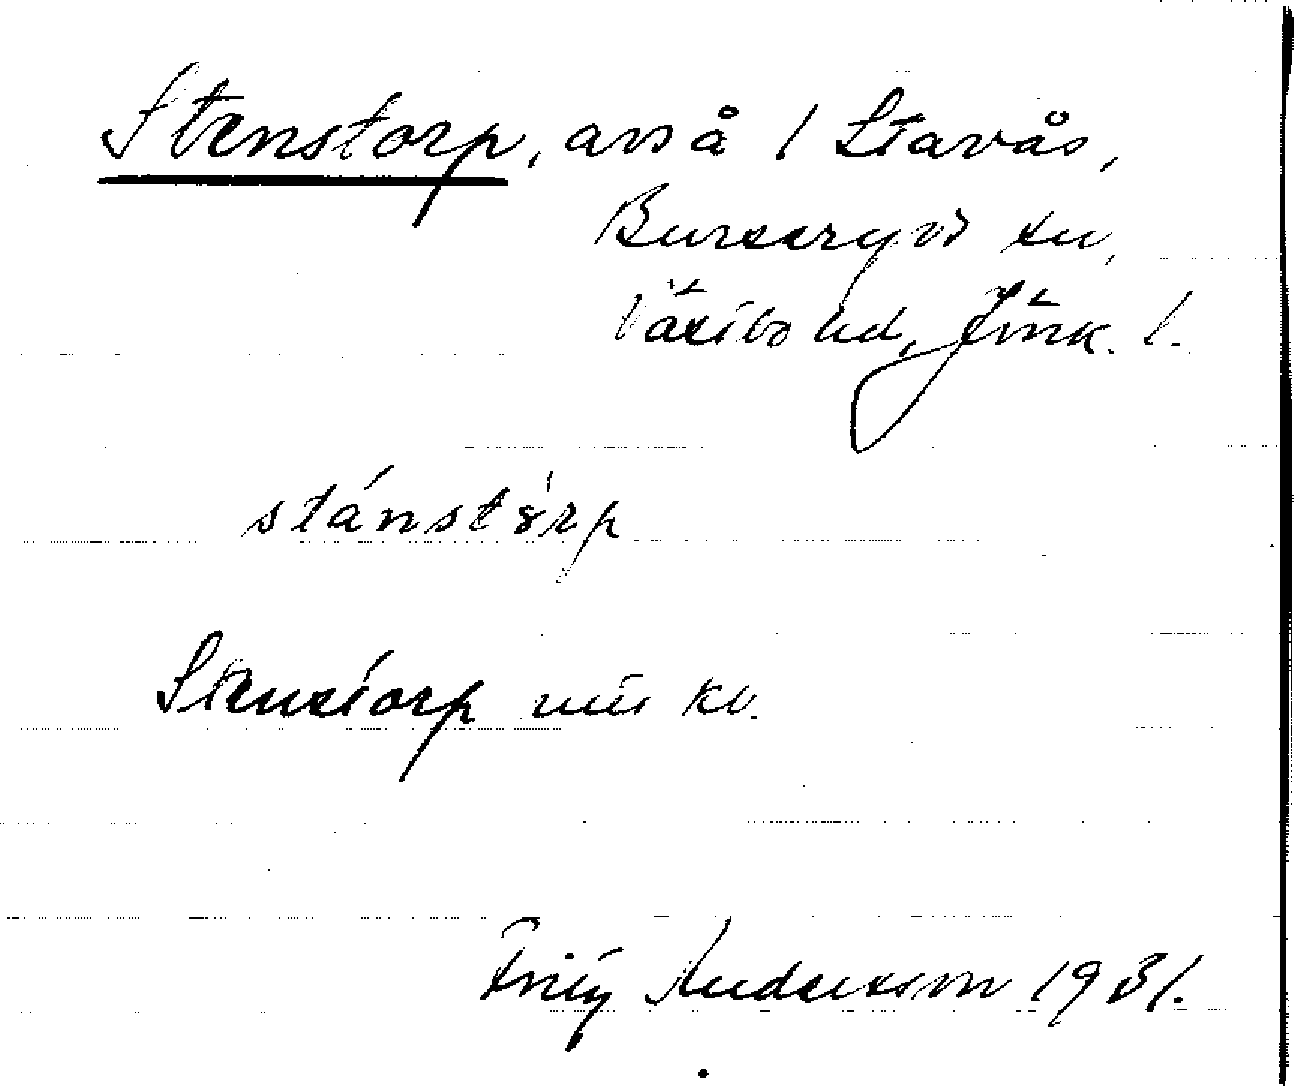 Stenstorp, avs å 1 Stavås,
Burseryds sn,
Västbo hd, Jönk. l.
stánstòrp
Stenstorp
Andersson 1931.